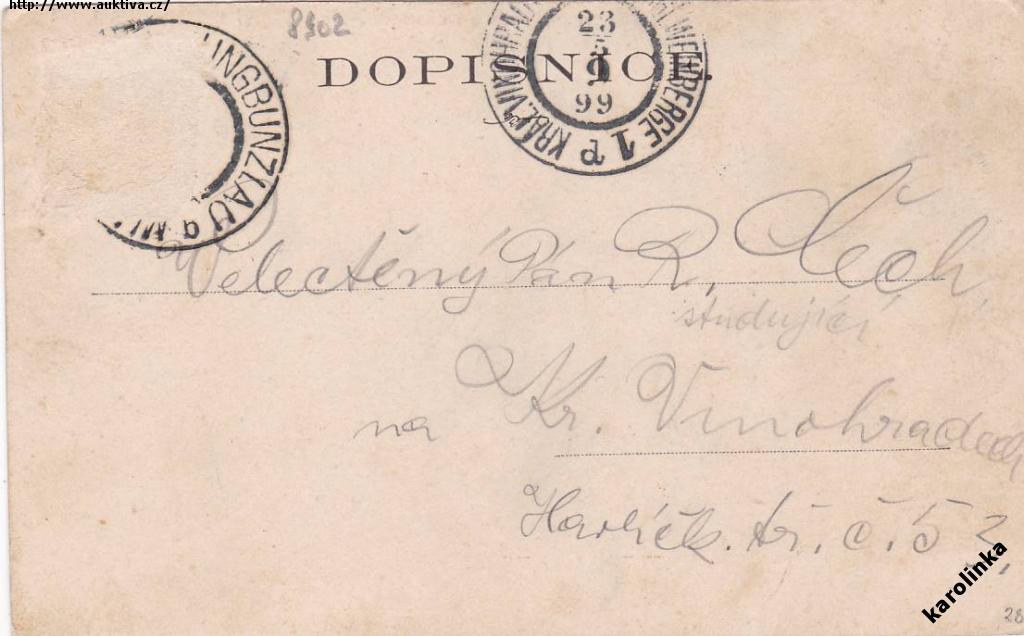 http://www.auktiva.cz/
8402
DOPISNICE.
JUNGBUNZLAU
KRÁL. VINOHRADY WEINBERGE 1 P
23
5
9
99
Velectěný Pán R. Čech,
studující
na Kr. Vinohradech
Havlíčk. tř. č. 52,
karolinka
28